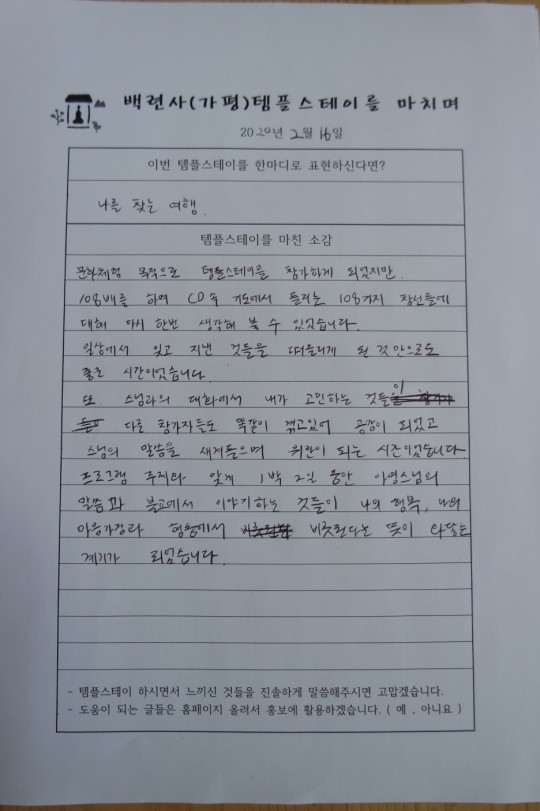 백련사(가평)템플스테이를 마치며
2020년 2월 16일
이번 템플스테이를 한마디로 표현하신다면?
나를 찾는 여행.
템플스테이를 마친 소감
문화체험 목적으로 템플스테이를 참가하게 되었지만
108배를 하며 CD속 기도에서 들리는 108가지 정신들에
대해 다시 한번 생각해 볼 수 있었습니다.
일상에서 잊고 지낸 것들을 떠올리게 된 것만으로도
좋은 시간이었습니다
또 스님과의 대화에서 내가 고민하는 것들이
다른 참가자들도 똑같이 겪고있어 공감이 되었고
스님의 말씀을 새겨들으며 위안이 되는 시간이었습니다
프로그램 주제와 맞게 1박 2일 동안 스님의
말씀과 불교에서 이야기하는 것들이 나의 행복, 나의
마음가짐과 평정에서 비롯된다는 뜻이 와닿는
계기가 되었습니다.
- 템플스테이 하시면서 느끼신 것들을 진솔하게 말씀해주시면 고맙겠습니다.
- 도움이 되는 글들은 홈페이지 올려서 홍보에 활용하겠습니다. ( 예 . 아니요 )